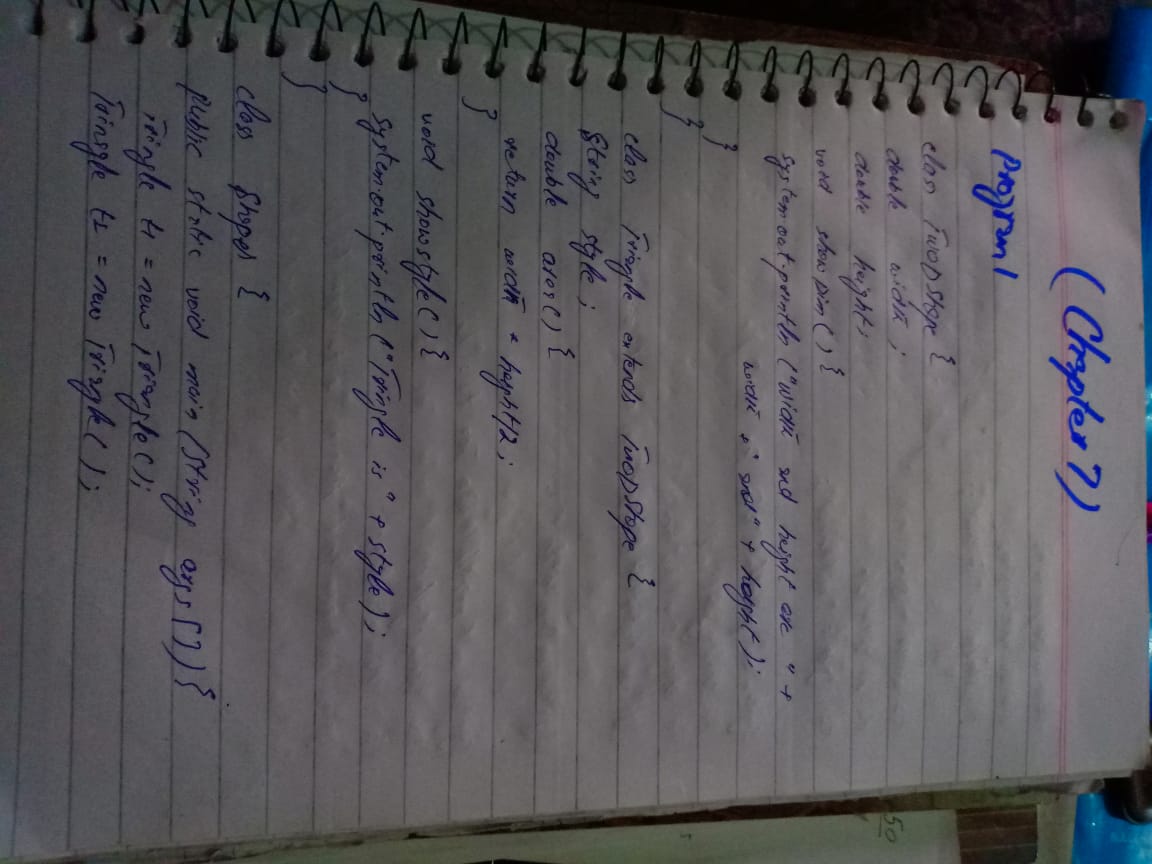 (Chapter 7)
Program 1
class TwoDShape {
double width ;
double height ;
void showDim ( ) {
System.out.println ("width and height are " +
width + " and " + height );
}
}
class Triangle extends TwoDShape {
String style ;
double area ( ) {
return width * height/2 ;
}
void showstyle ( ) {
System.out.println ("Triangle is " + style) ;
}
}
class Shapes {
public static void main (String args [ ] ) {
Triangle t1 = new Triangle ( ) ;
Triangle t2 = new Triangle ( ) ;
50